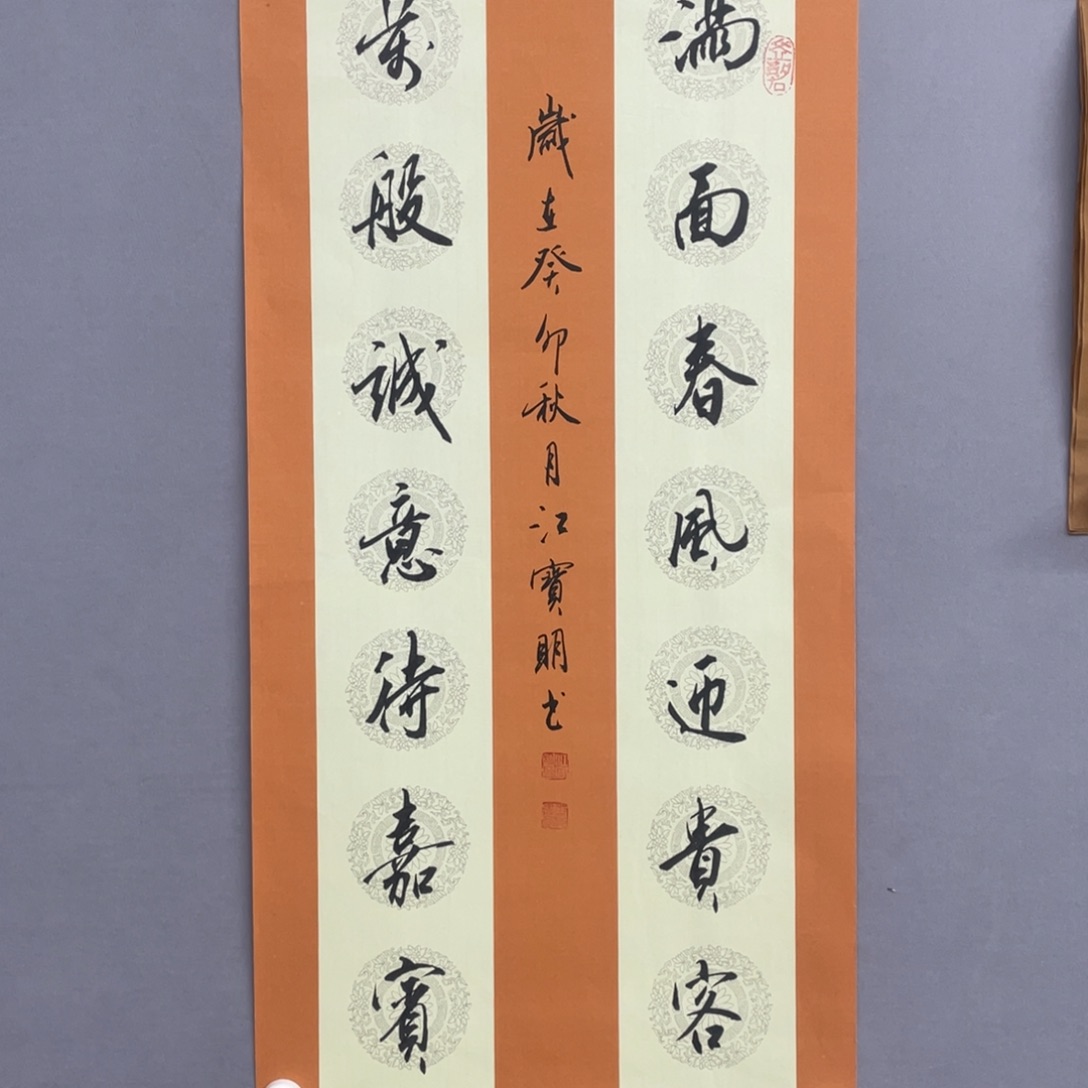 滿面春風迎貴客
歲在癸卯秋月江寶明書
萬般誠意待嘉賓